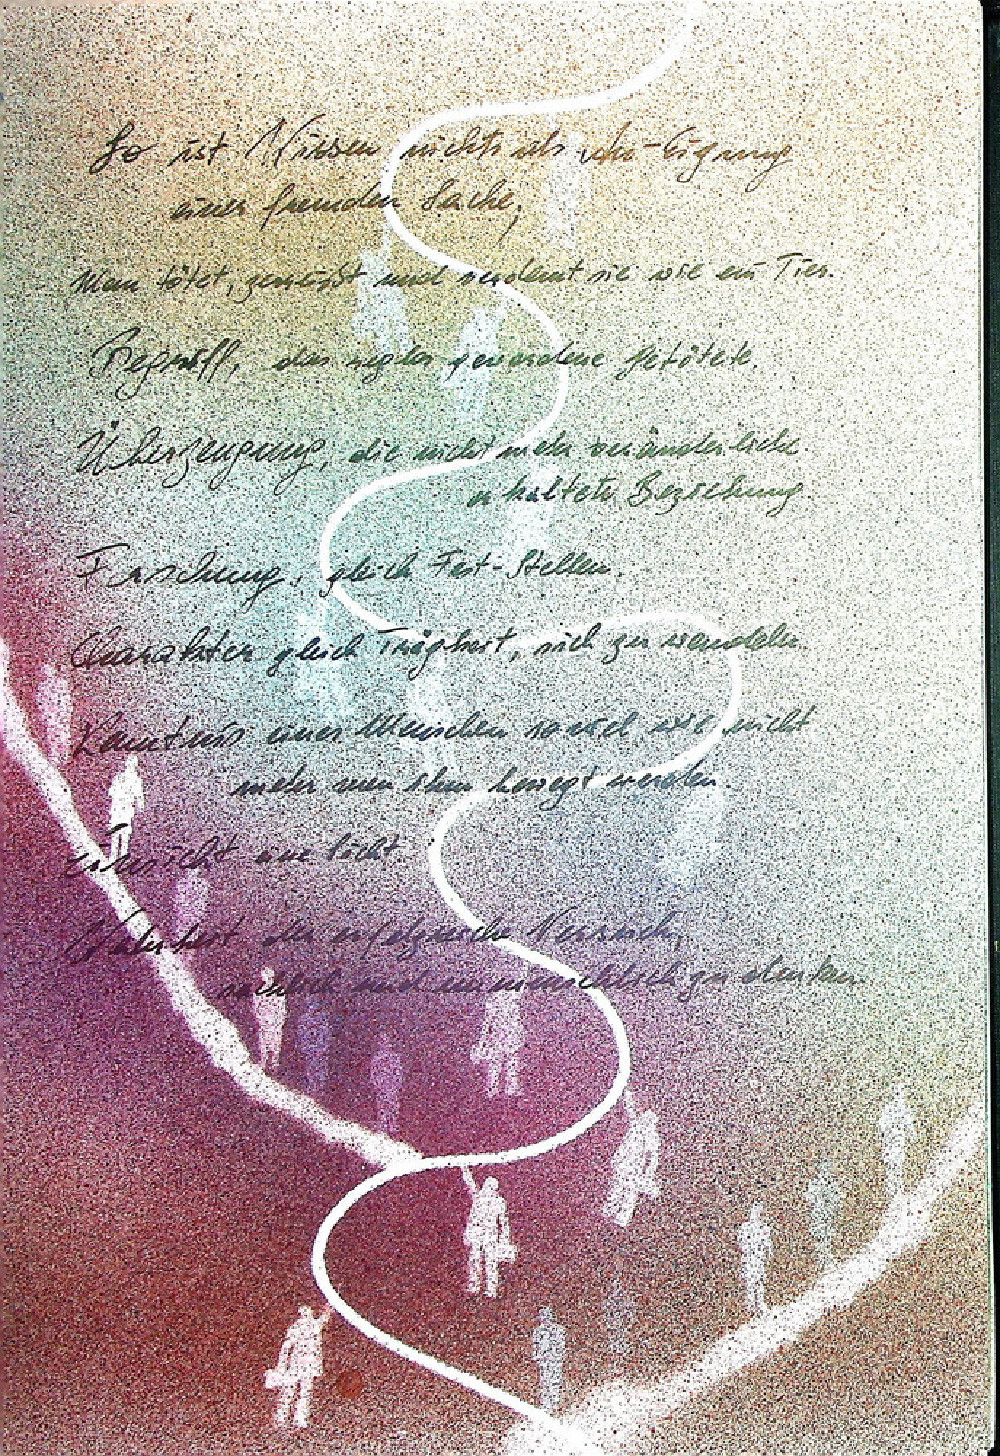 So ist Wissen nichts als An-Eignung
einer fremden Sache;
Man tötet, zerreißt und verdaut sie wie ein Tier.
Begriff, das reglos gewordene Getötete.
Überzeugung, die nicht mehr veränderliche
erkaltete Beziehung.
Forschung, gleich Fest-Stellen.
Charakter gleich Trägheit, sich zu wandeln.
Kenntnis eines Menschen so viel wie nicht
mehr von ihm bewegt werden.
Wahrheit der erfolgreiche Versuch,
und unmenschlich zu denken.